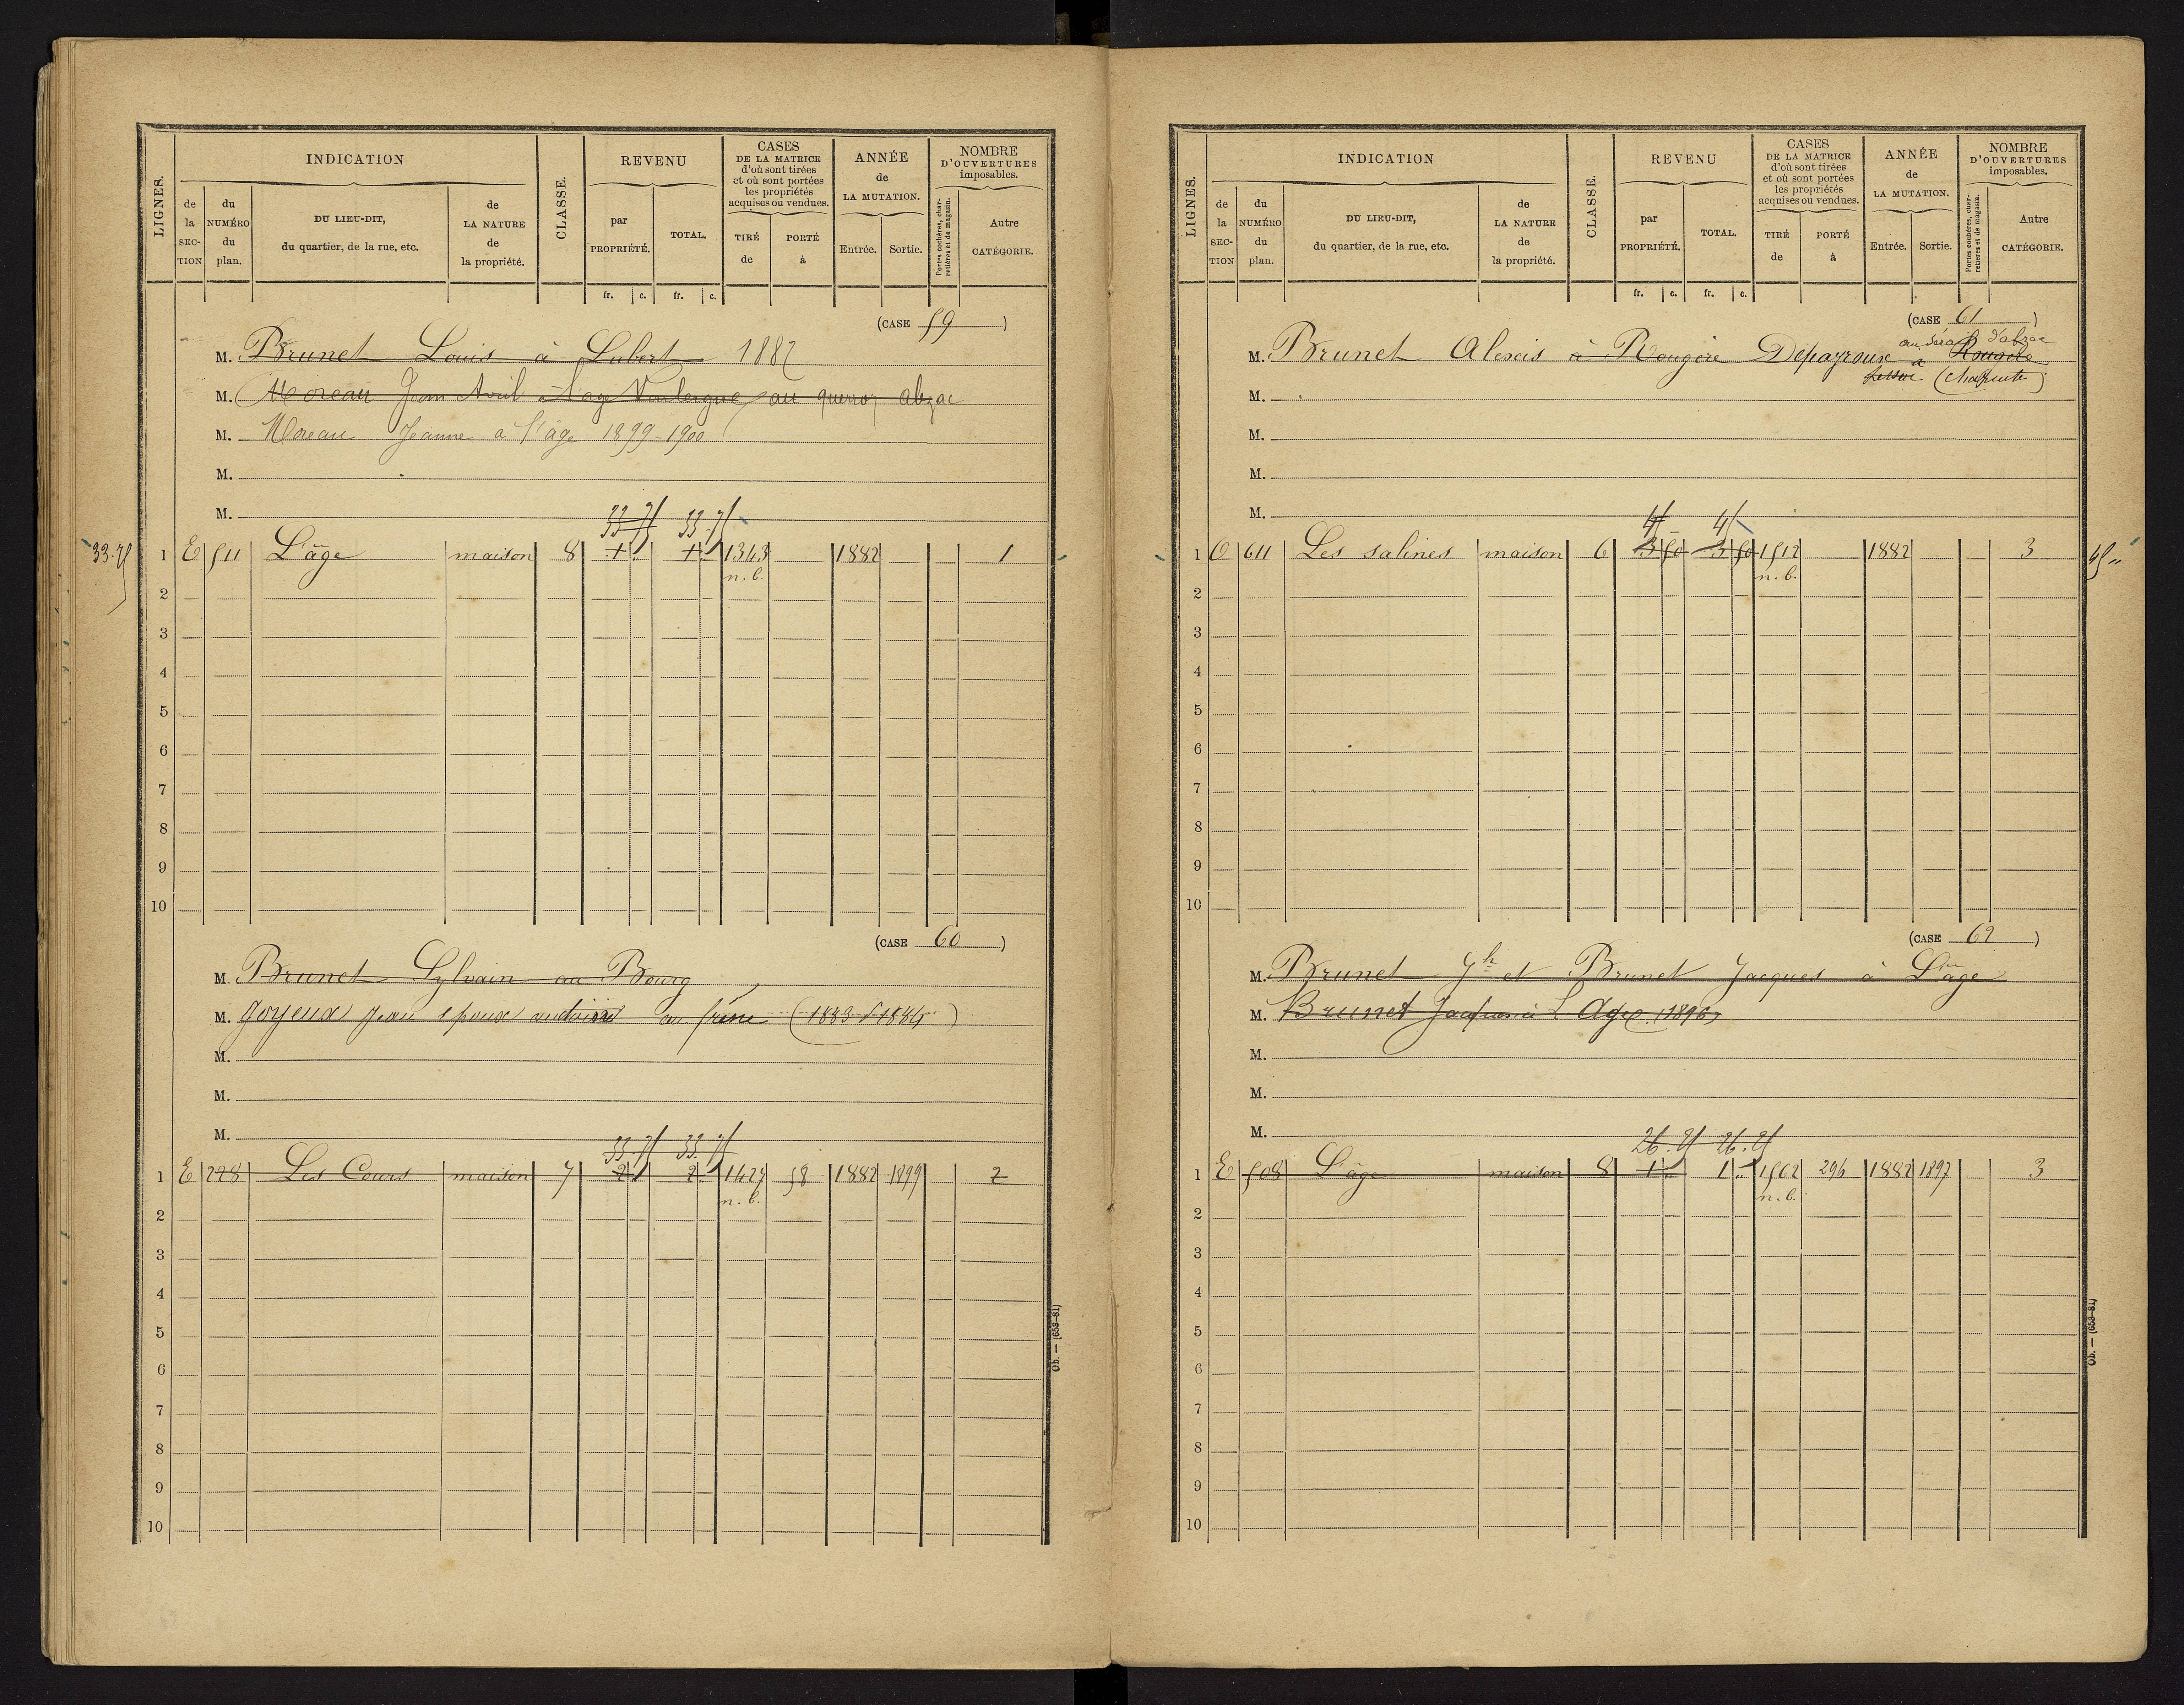 LIGNES.
INDICATION
de la SECTION
du NUMÉRO du plan.
DU LIEU-DIT, du quartier, de la rue, etc.
de LA NATURE de la propriété.
CLASSE.
REVENU
par PROPRIÉTÉ.
TOTAL.
CASES DE LA MATRICE d'où sont tirées et où sont portées les propriétés acquises ou vendues.
TIRÉ de
PORTÉ à
ANNÉE de LA MUTATION.
Entrée.
Sortie.
NOMBRE D'OUVERTURES imposables.
Portes cochères, charretières et de magasin.
Autre CATÉGORIE.
fr. c. fr. c.
(CASE 59)
M. Brunet Louis à Lubert 1882
M. Moreau Jean au querroy abzac
M. Moreau Jeanne a l'âge 1899-1900
M.
M.
33.75 33.75
33.75 1 E 511 L'âge maison 8 1 " 1 " 1343 1882 1
n.b.
2
3
4
5
6
7
8
9
10
(CASE 60)
M. Brunet Sylvain au Bourg
M. Goyeux Jean époux au frêne (1883
M.
M.
M.
33.75 33.75
1 E 228 Les Cours maison 7 2 " 2 " 1427 58 1882 1899 2
n.b.
2
3
4
5
6
7
8
9
10
Ob. — (653-81)
LIGNES.
INDICATION
de la SECTION
du NUMÉRO du plan.
DU LIEU-DIT, du quartier, de la rue, etc.
de LA NATURE de la propriété.
CLASSE.
REVENU
par PROPRIÉTÉ.
TOTAL.
CASES DE LA MATRICE d'où sont tirées et où sont portées les propriétés acquises ou vendues.
TIRÉ de
PORTÉ à
ANNÉE de LA MUTATION.
Entrée.
Sortie.
NOMBRE D'OUVERTURES imposables.
Portes cochères, charretières et de magasin.
Autre CATÉGORIE.
fr. c. fr. c.
(CASE 61)
d'abzac
M. Brunet Alexis à Rougère Dépayroux à
(Charente)
M.
M.
M.
M.
45 45
1 O 611 Les salines maison 6 3 50 3 50 1512 1882 3 45 "
n.b.
2
3
4
5
6
7
8
9
10
(CASE 62)
M. Brunet Jh et Brunet Jacques à L'âge
M. Brunet Jacques à L'Age 1896
M.
M.
M.
26.25 26.25
1 E 508 L'âge maison 8 1 " 1 " 1502 296 1882 1897 3
n.b.
2
3
4
5
6
7
8
9
10
Ob. — (653-81)